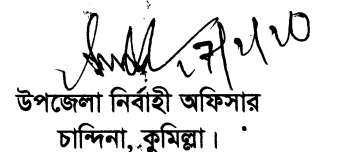 উপজেলা নির্বাহী অফিসার
চান্দিনা, কুমিল্লা।